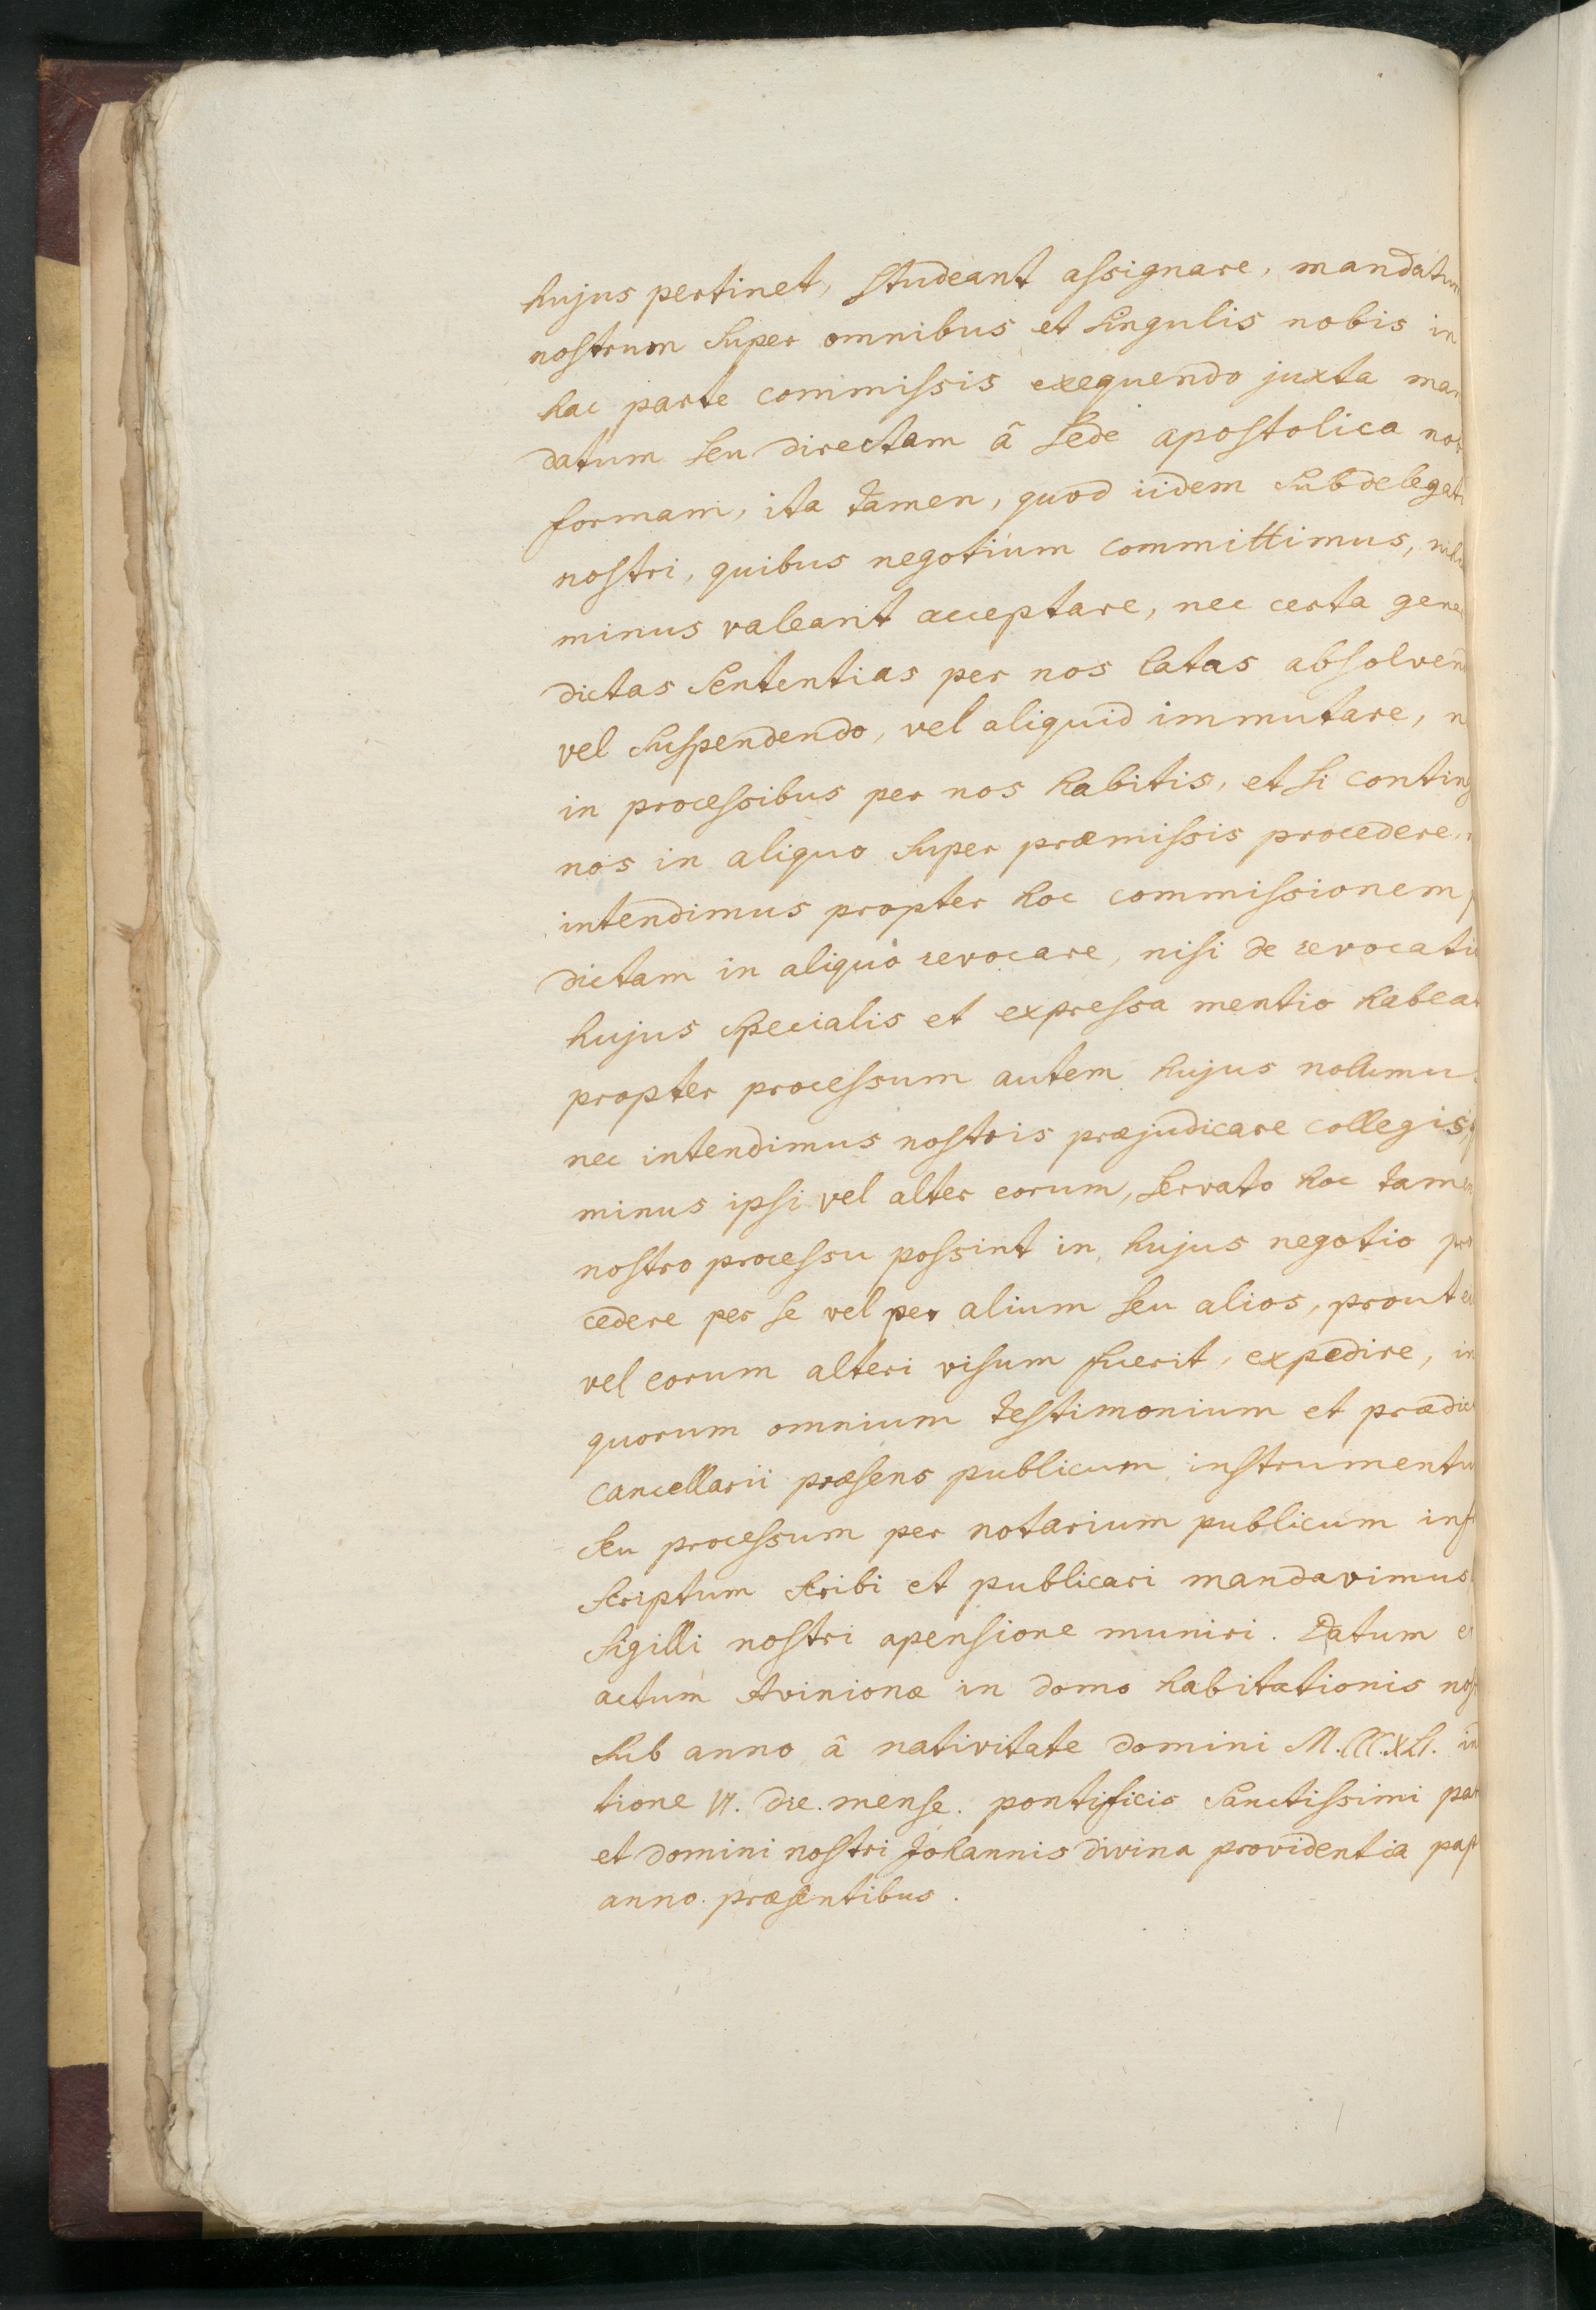 hujus pertinet, studeant assignare, mandatum
nostrum super omnibus et singulis nobis in
hac parte commissis exequendo juxta man
datum seu directam â sede apostolica nob
formam, ita tamen, quod iidem subdelegati
nostri, quibus negotium committimus, nihil
minus valeant acceptare, nec certa gene
dictas sententias per nos latas absolven
vel suspendendo, vel aliquid immutare, n
in processibus per nos habitis, et si conting
nos in aliquo super præmissis procedere,
intendimus propter hoc commissionem p
dictam in aliquo revocare, nisi de revocati
hujus specialis et expressa mentio habeat
propter processum autem hujus nolumus
nec intendimus nostris præjudicare collegis,
minus ipsi vel alter eorum, servato hoc tamen
nostro processu possint in hujus negotio pro
cedere per se vel per alium seu alios, prout ei
vel eorum alteri visum fuerit, expedire, in
quorum omnium testimonium et prædict
cancellarii præsens publicum instrumentum
seu processum per notarium publicum inf
scriptum scribi et publicari mandavimus
sigilli nostri apensione muniri. Datum et
actum Avinionæ in domo habitationis nost
sub anno â nativitate domini M.CCC.XLI. in
tione VI. die. mense. pontificio sanctissimi pat
et domini nostri Johannis divina providentia pap
anno. præsentibus.